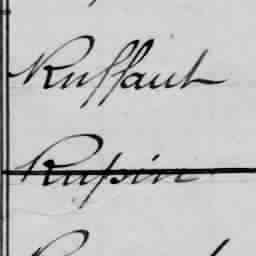 Ruffault
Rupin